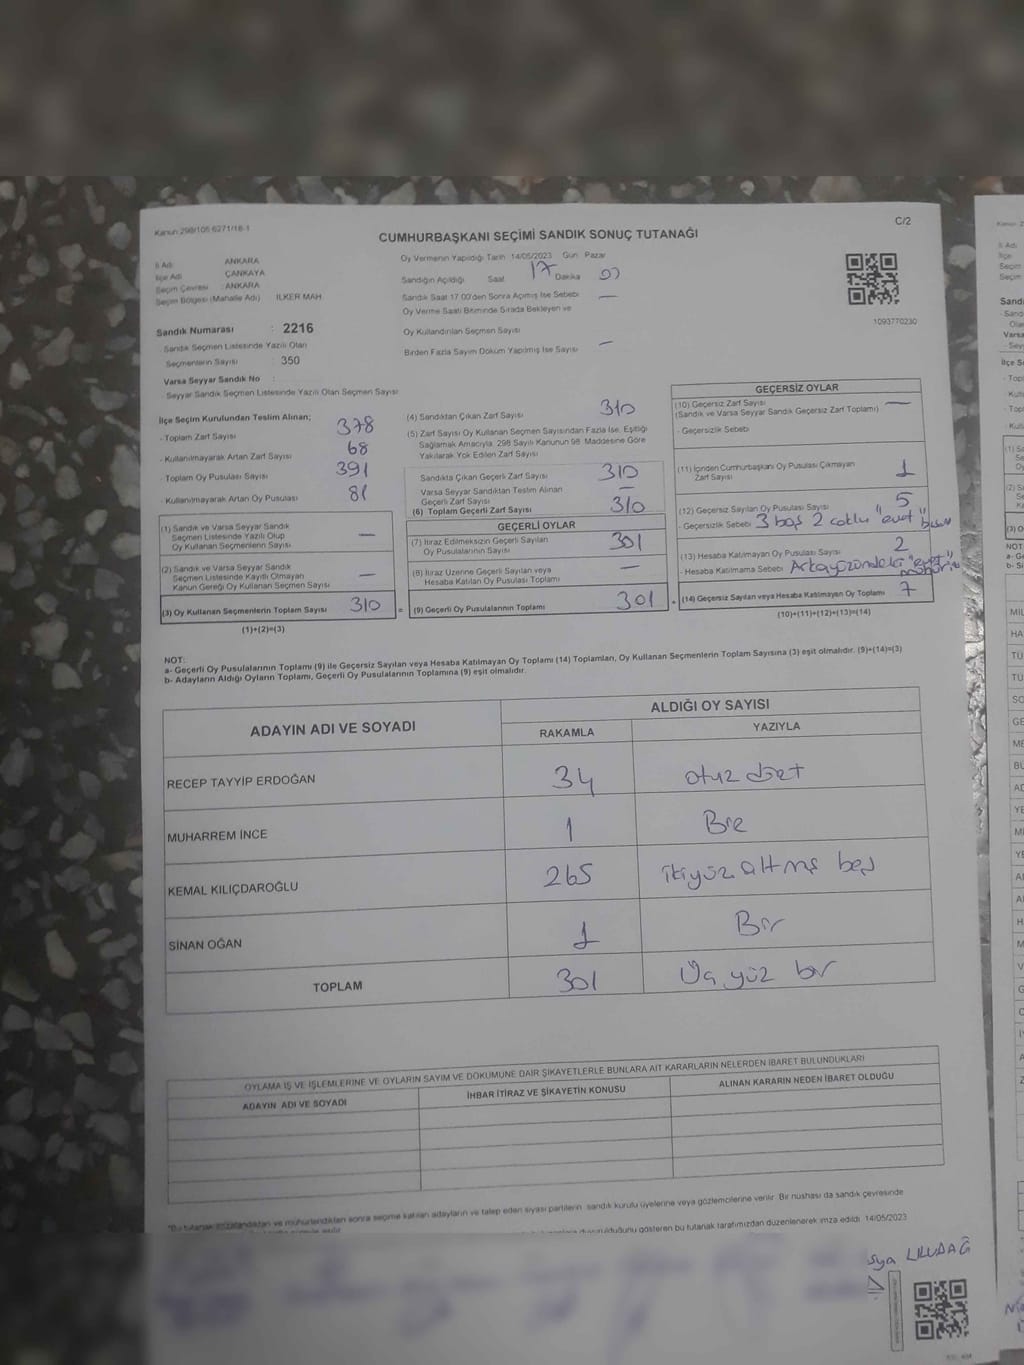 Kanun 298/105 6271/18-1
C/2
CUMHURBAŞKANI SEÇİMİ SANDIK SONUÇ TUTANAĞI
İl Adı : ANKARA
İlçe Adı : ÇANKAYA
Seçim Çevresi : ANKARA
Seçim Bölgesi (Mahalle Adı) : İLKER MAH
Sandık Numarası : 2216
Sandık Seçmen Listesinde Yazılı Olan
Seçmenlerin Sayısı : 350
Varsa Seyyar Sandık No :
Seyyar Sandık Seçmen Listesinde Yazılı Olan Seçmen Sayısı
Oy Vermenin Yapıldığı Tarih 14/05/2023 Gün Pazar
Sandığın Açıldığı Saat 17 Dakika
Sandık Saat 17:00'den Sonra Açılmış İse Sebebi —
Oy Verme Saati Bitiminde Sırada Bekleyen ve
Oy Kullandırılan Seçmen Sayısı
Birden Fazla Sayım Döküm Yapılmış İse Sayısı —
1093770230
İlçe Seçim Kurulundan Teslim Alınan;
- Toplam Zarf Sayısı 378
- Kullanılmayarak Artan Zarf Sayısı 68
- Toplam Oy Pusulası Sayısı 391
- Kullanılmayarak Artan Oy Pusulası 81
(1) Sandık ve Varsa Seyyar Sandık
Seçmen Listesinde Yazılı Olup
Oy Kullanan Seçmenlerin Sayısı —
(2) Sandık ve Varsa Seyyar Sandık
Seçmen Listesinde Kayıtlı Olmayan
Kanun Gereği Oy Kullanan Seçmen Sayısı —
(3) Oy Kullanan Seçmenlerin Toplam Sayısı 310 =
(1)+(2)=(3)
(4) Sandıktan Çıkan Zarf Sayısı 310
(5) Zarf Sayısı Oy Kullanan Seçmen Sayısından Fazla İse, Eşitliği
Sağlamak Amacıyla, 298 Sayılı Kanunun 98. Maddesine Göre
Yakılarak Yok Edilen Zarf Sayısı
Sandıkta Çıkan Geçerli Zarf Sayısı 310
Varsa Seyyar Sandıktan Teslim Alınan
Geçerli Zarf Sayısı —
(6) Toplam Geçerli Zarf Sayısı 310
GEÇERLİ OYLAR
(7) İtiraz Edilmeksizin Geçerli Sayılan
Oy Pusulalarının Sayısı 301
(8) İtiraz Üzerine Geçerli Sayılan veya
Hesaba Katılan Oy Pusulası Toplamı —
(9) Geçerli Oy Pusulalarının Toplamı 301 +
GEÇERSİZ OYLAR
(10) Geçersiz Zarf Sayısı —
(Sandık ve Varsa Seyyar Sandık Geçersiz Zarf Toplamı)
- Geçersizlik Sebebi
(11) İçinden Cumhurbaşkanı Oy Pusulası Çıkmayan
Zarf Sayısı 1
(12) Geçersiz Sayılan Oy Pusulası Sayısı 5
- Geçersizlik Sebebi 3 boş 2 çoklu "evet"
(13) Hesaba Katılmayan Oy Pusulası Sayısı 2
- Hesaba Katılmama Sebebi Arkayüzündeki "evet"
(14) Geçersiz Sayılan veya Hesaba Katılmayan Oy Toplamı 7
(10)+(11)+(12)+(13)=(14)
NOT:
a- Geçerli Oy Pusulalarının Toplamı (9) ile Geçersiz Sayılan veya Hesaba Katılmayan Oy Toplamı (14) Toplamları, Oy Kullanan Seçmenlerin Toplam Sayısına (3) eşit olmalıdır. (9)+(14)=(3)
b- Adayların Aldığı Oyların Toplamı, Geçerli Oy Pusulalarının Toplamına (9) eşit olmalıdır.
ADAYIN ADI VE SOYADI ALDIĞI OY SAYISI
RAKAMLA YAZIYLA
RECEP TAYYİP ERDOĞAN 34 otuz dört
MUHARREM İNCE 1 Bir
KEMAL KILIÇDAROĞLU 265 ikiyüz altmış beş
SİNAN OĞAN 1 Bir
TOPLAM 301 Üç yüz bir
OYLAMA İŞ VE İŞLEMLERİNE VE OYLARIN SAYIM VE DÖKÜMÜNE DAİR ŞİKAYETLERLE BUNLARA AİT KARARLARIN NELERDEN İBARET BULUNDUKLARI
ADAYIN ADI VE SOYADI İHBAR İTİRAZ VE ŞİKAYETİN KONUSU ALINAN KARARIN NEDEN İBARET OLDUĞU
"Bu tutanak imzalandıktan ve mühürlendikten sonra seçime katılan adayların ve talep eden siyasi partilerin sandık kurulu üyelerine veya gözlemcilerine verilir. Bir nüshası da sandık çevresinde
olduğunu gösteren bu tutanak tarafımızdan düzenlenerek imza edildi. 14/05/2023